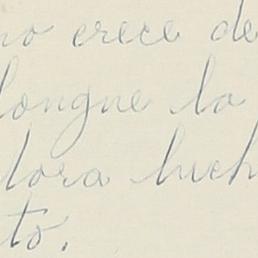 no crece de
longue la
dora luch
to.